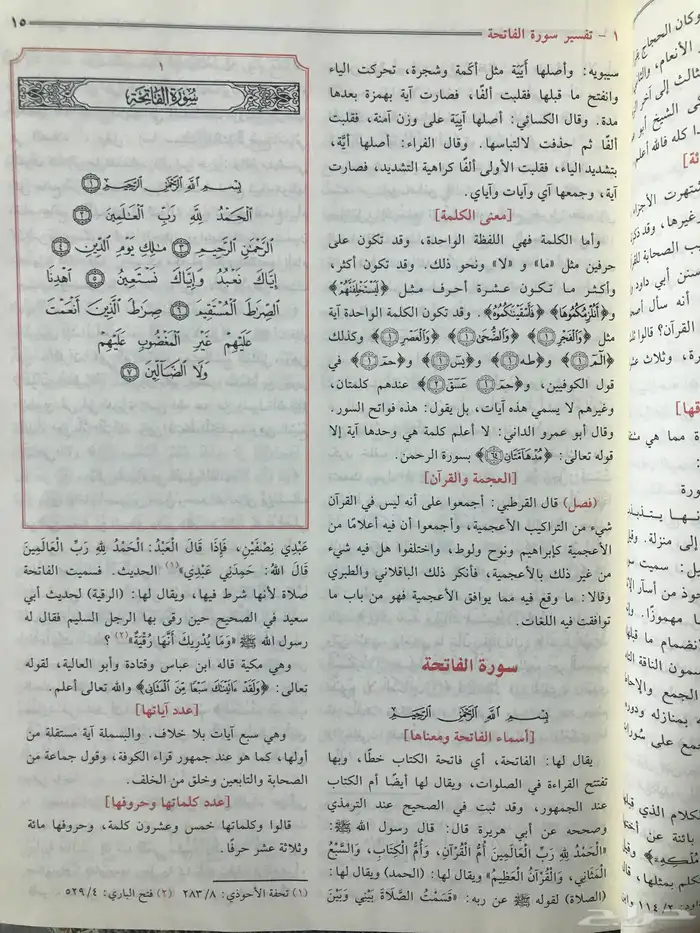 ١ - تفسير سورة الفاتحة
١٥
سيبويه: وأصلها أَيَيَة مثل أكَمة وشجرة، تحركت الياء
وانفتح ما قبلها فقلبت ألفًا، فصارت آية بهمزة بعدها
مدة. وقال الكسائي: أصلها آيِيَة على وزن آمنة، فقلبت
ألفًا ثم حذفت لالتباسها. وقال الفراء: أصلها أيَّة،
بتشديد الياء، فقلبت الأولى ألفًا كراهية التشديد، فصارت
آية، وجمعها آي وآيات وآياي.
[معنى الكلمة]
وأما الكلمة فهي اللفظة الواحدة، وقد تكون على
حرفين مثل «ما» و «لا» ونحو ذلك. وقد تكون أكثر،
وأكثر ما تكون عشرة أحرف مثل ﴿لَيَسْتَخْلِفَنَّهُمْ﴾
و﴿أَنُلْزِمُكُمُوهَا﴾ ﴿فَأَسْقَيْنَاكُمُوهُ﴾. وقد تكون الكلمة الواحدة آية
مثل ﴿وَالْفَجْرِ ١﴾ ﴿وَالضُّحَىٰ ١﴾ ﴿وَالْعَصْرِ ١﴾ وكذلك
﴿الٓمٓ ١﴾ و﴿طه ١﴾ و﴿يسٓ ١﴾ و﴿حمٓ ١﴾ في
قول الكوفيين، و﴿حمٓ ١ عٓسٓقٓ ٢﴾ عندهم كلمتان،
وغيرهم لا يسمي هذه آيات، بل يقول: هذه فواتح السور.
وقال أبو عمرو الداني: لا أعلم كلمة هي وحدها آية إلا
قوله تعالى: ﴿مُدْهَامَّتَانِ ٦٤﴾ بسورة الرحمن.
[العجمة والقرآن]
(فصل) قال القرطبي: أجمعوا على أنه ليس في القرآن
شيء من التراكيب الأعجمية، وأجمعوا أن فيه أعلامًا من
الأعجمية كإبراهيم ونوح ولوط، واختلفوا هل فيه شيء
من غير ذلك بالأعجمية، فأنكر ذلك الباقلاني والطبري
وقالا: ما وقع فيه مما يوافق الأعجمية فهو من باب ما
توافقت فيه اللغات.
سورة الفاتحة
بِسْمِ اللَّهِ الرَّحْمَٰنِ الرَّحِيمِ
[أسماء الفاتحة ومعناها]
يقال لها: الفاتحة، أي فاتحة الكتاب خطًا، وبها
تفتتح القراءة في الصلوات، ويقال لها أيضًا أم الكتاب
عند الجمهور، وقد ثبت في الصحيح عند الترمذي
وصححه عن أبي هريرة قال: قال رسول الله ﷺ:
«الْحَمْدُ لِلهِ رَبِّ الْعَالَمِينَ أُمُّ الْقُرْآنِ، وَأُمُّ الْكِتَابِ، وَالسَّبْعُ
الْمَثَانِي، وَالْقُرْآنُ الْعَظِيمُ» ويقال لها: (الحمد) ويقال لها:
(الصلاة) لقوله ﷺ عن ربه: «قَسَمْتُ الصَّلَاةَ بَيْنِي وَبَيْنَ
١
سورة الفاتحة
بِسْمِ اللَّهِ الرَّحْمَٰنِ الرَّحِيمِ ١
الْحَمْدُ لِلَّهِ رَبِّ الْعَالَمِينَ ٢
الرَّحْمَٰنِ الرَّحِيمِ ٣ مَالِكِ يَوْمِ الدِّينِ ٤
إِيَّاكَ نَعْبُدُ وَإِيَّاكَ نَسْتَعِينُ ٥ اهْدِنَا
الصِّرَاطَ الْمُسْتَقِيمَ ٦ صِرَاطَ الَّذِينَ أَنْعَمْتَ
عَلَيْهِمْ غَيْرِ الْمَغْضُوبِ عَلَيْهِمْ
وَلَا الضَّالِّينَ ٧
عَبْدِي نِصْفَيْنِ، فَإِذَا قَالَ الْعَبْدُ: الْحَمْدُ لِلهِ رَبِّ الْعَالَمِينَ
قَالَ اللهُ: حَمِدَنِي عَبْدِي»(١) الحديث. فسميت الفاتحة
صلاة لأنها شرط فيها، ويقال لها: (الرقية) لحديث أبي
سعيد في الصحيح حين رقى بها الرجل السليم فقال له
رسول الله ﷺ «وَمَا يُدْرِيكَ أَنَّهَا رُقْيَةٌ»(٢)؟
وهي مكية قاله ابن عباس وقتادة وأبو العالية، لقوله
تعالى: ﴿وَلَقَدْ ءَاتَيْنَاكَ سَبْعًا مِّنَ الْمَثَانِي﴾ والله تعالى أعلم.
[عدد آياتها]
وهي سبع آيات بلا خلاف. والبسملة آية مستقلة من
أولها، كما هو عند جمهور قراء الكوفة، وقول جماعة من
الصحابة والتابعين وخلق من الخلف.
[عدد كلماتها وحروفها]
قالوا وكلماتها خمس وعشرون كلمة، وحروفها مائة
وثلاثة عشر حرفًا.
(١) تحفة الأحوذي: ٢٨٣/٨ (٢) فتح الباري: ٥٢٩/٤